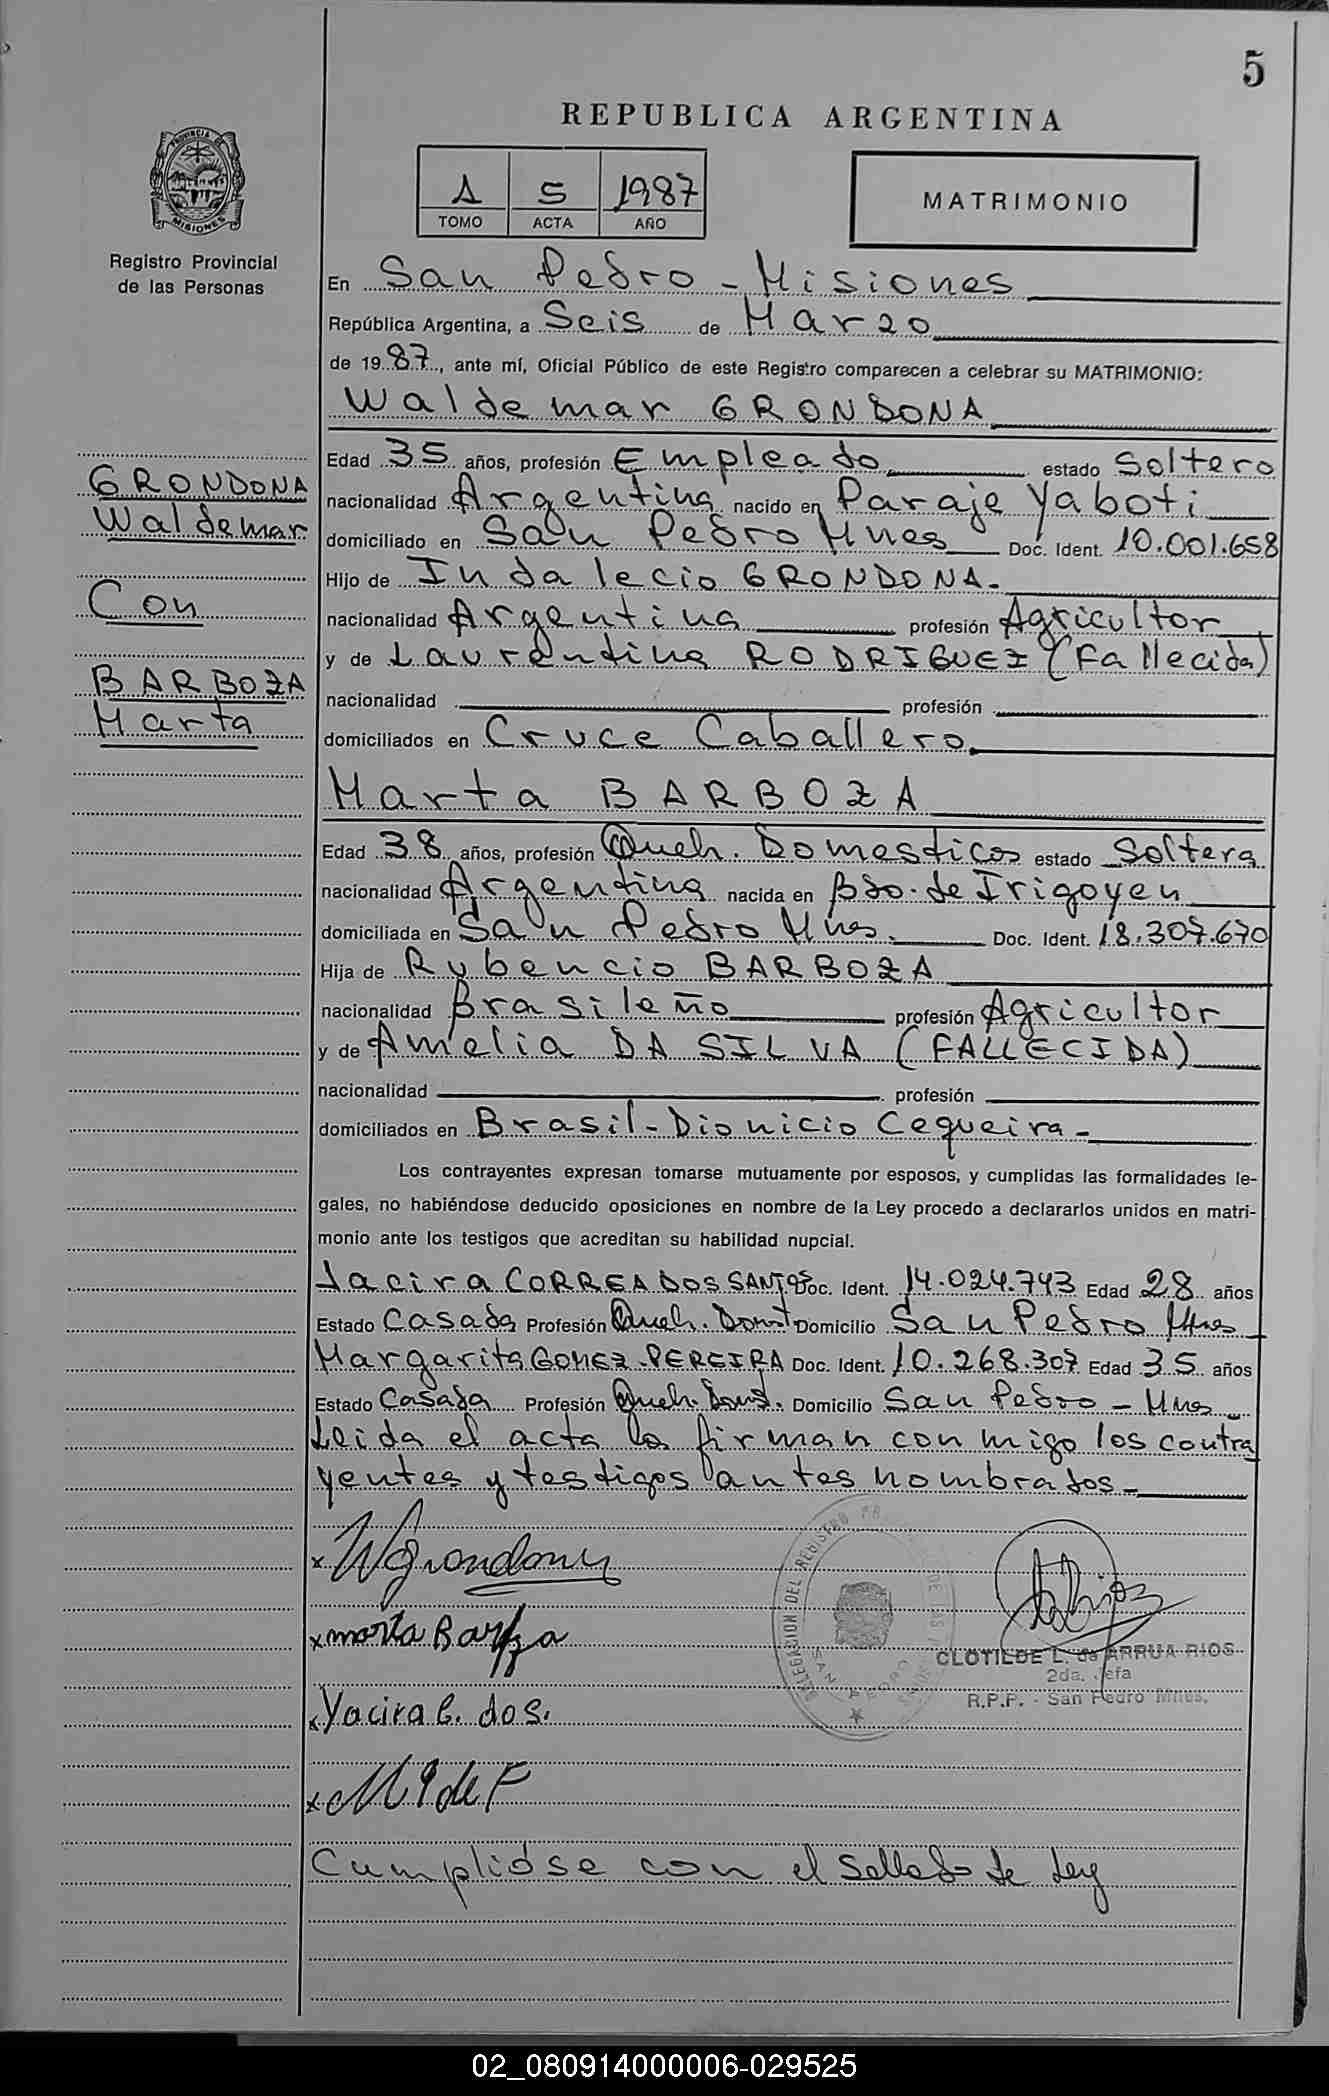 5
REPUBLICA ARGENTINA
1 5 1987
TOMO ACTA AÑO
MATRIMONIO
PROVINCIA DE MISIONES
Registro Provincial
de las Personas
En San Pedro - Misiones
República Argentina, a Seis de Marzo
de 1987, ante mí, Oficial Público de este Registro comparecen a celebrar su MATRIMONIO:
Waldemar GRONDONA
GRONDONA
Waldemar
Con
BARBOZA
Marta
Edad 35 años, profesión Empleado estado Soltero
nacionalidad Argentina nacido en Paraje Yaboti
domiciliado en San Pedro Mnes Doc. Ident. 10.001.658
Hijo de Indalecio GRONDONA.
nacionalidad Argentina profesión Agricultor
y de Laurentina RODRIGUEZ (Fallecida)
nacionalidad profesión
domiciliados en Cruce Caballero
Marta BARBOZA
Edad 38 años, profesión Queh. Domesticos estado Soltera
nacionalidad Argentina nacida en Bdo. de Irigoyen
domiciliada en San Pedro Mnes. Doc. Ident. 18.307.670
Hija de Rubencio BARBOZA
nacionalidad Brasileño profesión Agricultor
y de Amelia DA SILVA (FALLECIDA)
nacionalidad profesión
domiciliados en Brasil - Dionicio Cequeira -
Los contrayentes expresan tomarse mutuamente por esposos, y cumplidas las formalidades le-
gales, no habiéndose deducido oposiciones en nombre de la Ley procedo a declararlos unidos en matri-
monio ante los testigos que acreditan su habilidad nupcial.
Jacira CORREA DOS SANTOS Doc. Ident. 14.024.743 Edad 28 años
Estado Casada Profesión Queh. Domst Domicilio San Pedro Mnes
Margarita GOMEZ PEREIRA Doc. Ident. 10.268.307 Edad 35 años
Estado Casada Profesión Queh. Domst. Domicilio San Pedro - Mnes
Leida el acta la firman conmigo los contra
yentes y testigos antes nombrados -
x WGrondona
x marta Barboza
x Yacira C. dos.
x M G de P
DELEGACION DEL REGISTRO DE LAS
SAN PEDRO
CLOTILDE L. de ARRUA RIOS
2da. Jefa
R.P.P. - San Pedro Mnes.
Cumpliose con el Sellado de Ley
02_080914000006-029525